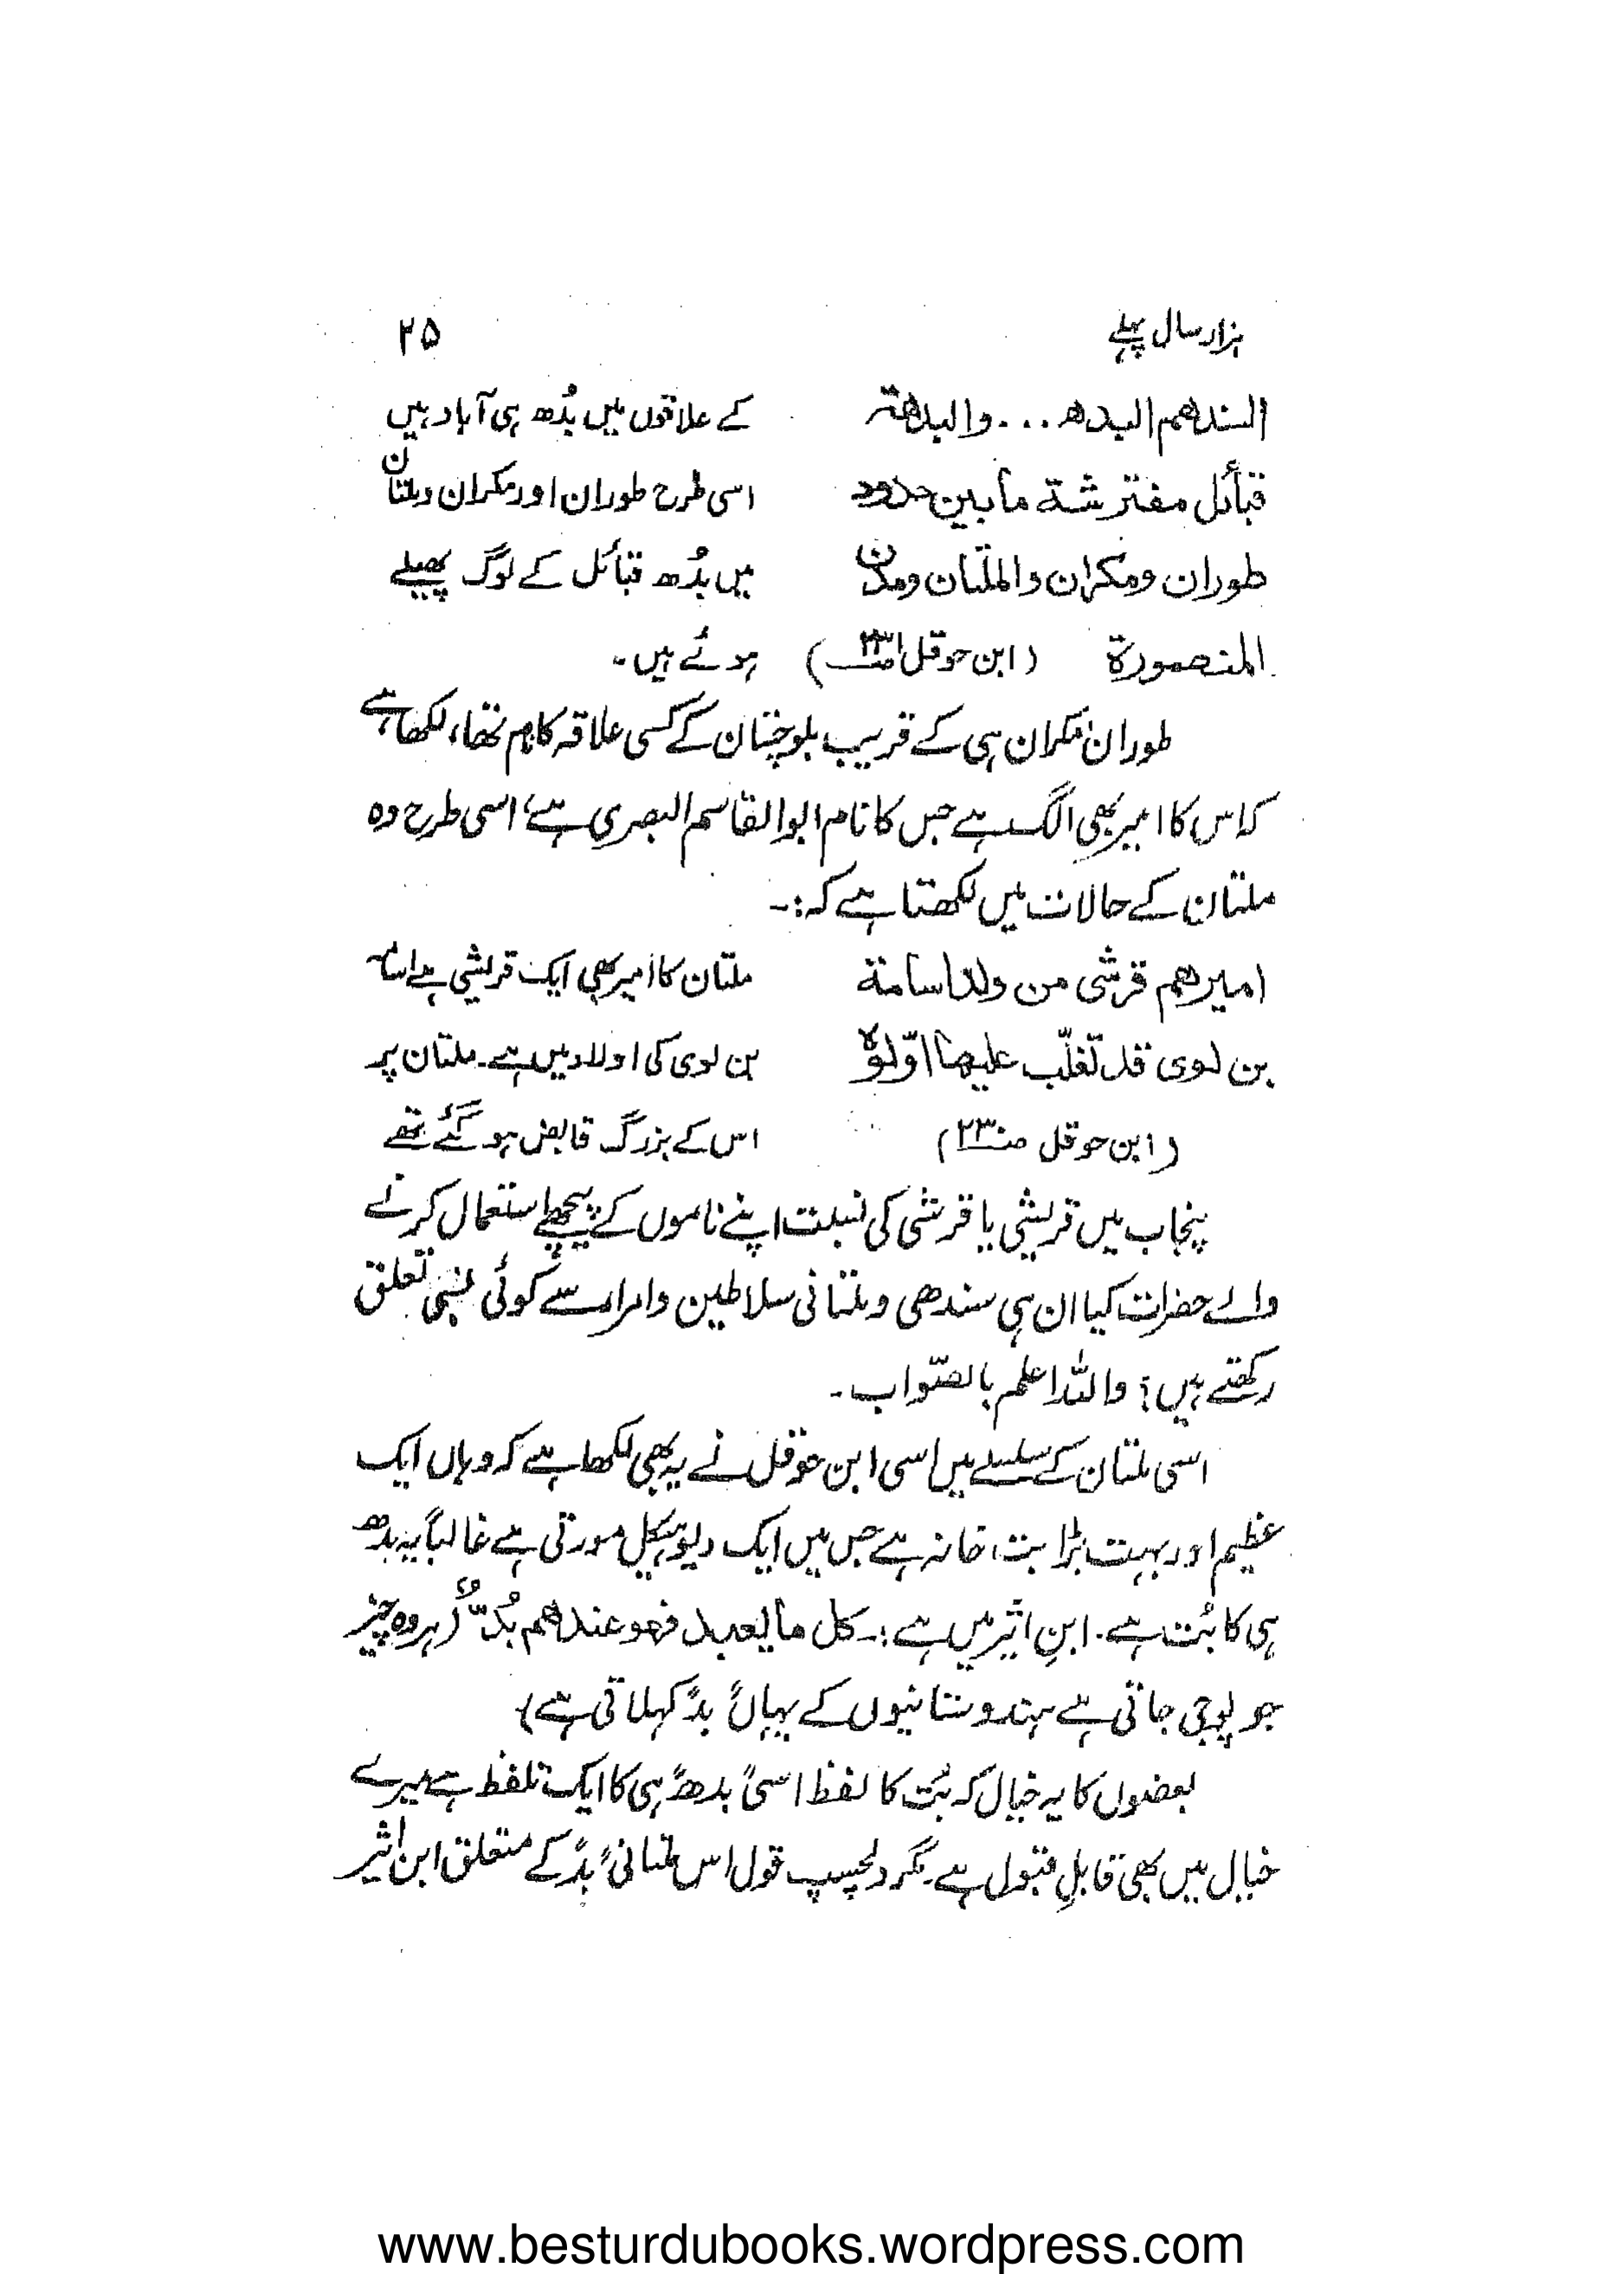 ہزار سال پہلے ۲۵
السند هم البدھ ... والبدھة کے علاقوں میں بُدھ ہی آباد ہیں
قبائل مفترشة مابین حدود اسی طرح طوران اور مکران و ملتان
طوران ومکران والملتان ومدن میں بُدھ قبائل کے لوگ پھیلے
المنصورة (ابن حوقل ہوئے ہیں۔
طوران مکران ہی کے قریب بلوچستان کے کسی علاقہ کا نام تھا، لکھا ہے
کہ اس کا امیر بھی الگ ہے جس کا نام ابوالقاسم البصری ہے، اسی طرح وہ
ملتان کے حالات میں لکھتا ہے کہ:۔
امیرهم قرشی من ولد اسامة ملتان کا امیر بھی ایک قریشی ہے اسامہ
بن لوی قد تغلّب علیها اوّلوه بن لوی کی اولاد میں ہے۔ ملتان پر
(ابن حوقل صـ۲۳) اس کے بزرگ قابض ہو گئے تھے
پنجاب میں قریشی یا قرشی کی نسبت اپنے ناموں کے پیچھے استعمال کرنے
والے حضرات کیا ان ہی سندھی و ملتانی سلاطین و امراء سے کوئی نسبی تعلق
رکھتے ہیں؟ واللہ اعلم بالصّواب۔
اسی ملتان کے سلسلے میں اسی ابن حوقل نے یہ بھی لکھا ہے کہ وہاں ایک
عظیم اور بہت بڑا بت خانہ ہے جس میں ایک دیو ہیکل مورتی ہے غالباً یہ بدھ
ہی کا بُت ہے۔ ابنِ اثیر میں ہے:۔ کل ما یعبد فهو عندهم بُدّ (ہر وہ چیز
جو پوجی جاتی ہے ہندوستانیوں کے یہاں "بد" کہلاتی ہے)
بعضوں کا یہ خیال کہ بُت کا لفظ اسی "بدھ" ہی کا ایک تلفظ ہے میرے
خیال میں بھی قابلِ قبول ہے۔ مگر دلچسپ قول اس ملتانی "بد" کے متعلق ابن اثیر
www.besturdubooks.wordpress.com